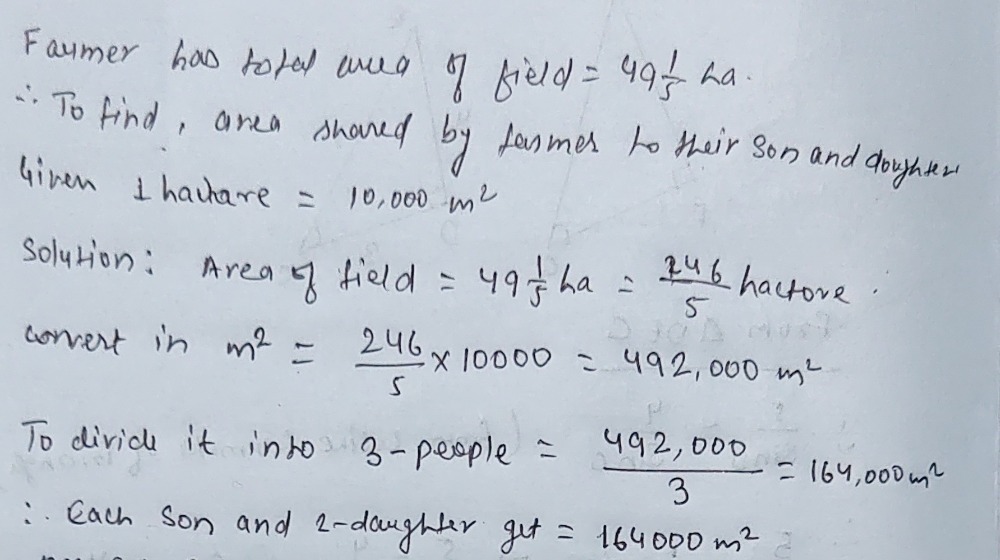 Farmer has total area of field = 49 1/5 ha.
∴ To find, area shared by farmer to their son and doughter
Given 1 hactare = 10,000 m²
Solution: Area of field = 49 1/5 ha = 246/5 hactore.
convert in m² = 246/5 × 10000 = 492,000 m²
To divide it into 3-people = 492,000/3 = 164,000 m²
∴ Each son and 2-daughter get = 164000 m²